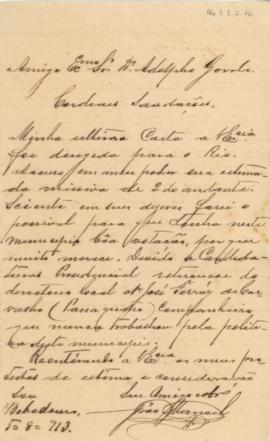 AG 3.3.2.16
Amigo Exmo Sr. Dr. Adolpho Gordo.
Cordeaes Saudações.
Minha ultima Carta a V Excia
foi dirigida para o Rio.
em meu poder sua estima-
da missiva de 2 do andante.
Sciente em seus dizeres farei o
possivel para que tenha neste
municipio bôa votação, por que
muito merece. Devido a Candida-
tura
directorio local o José Ferraz de Car-
valho ( ) Companheiro
que nunca trabalhou pela politi-
ca deste municipio.
Reiterando a V Excia os meus pro-
testos de estima e consideração
Sou
Bebedouro,
5-8-913. João